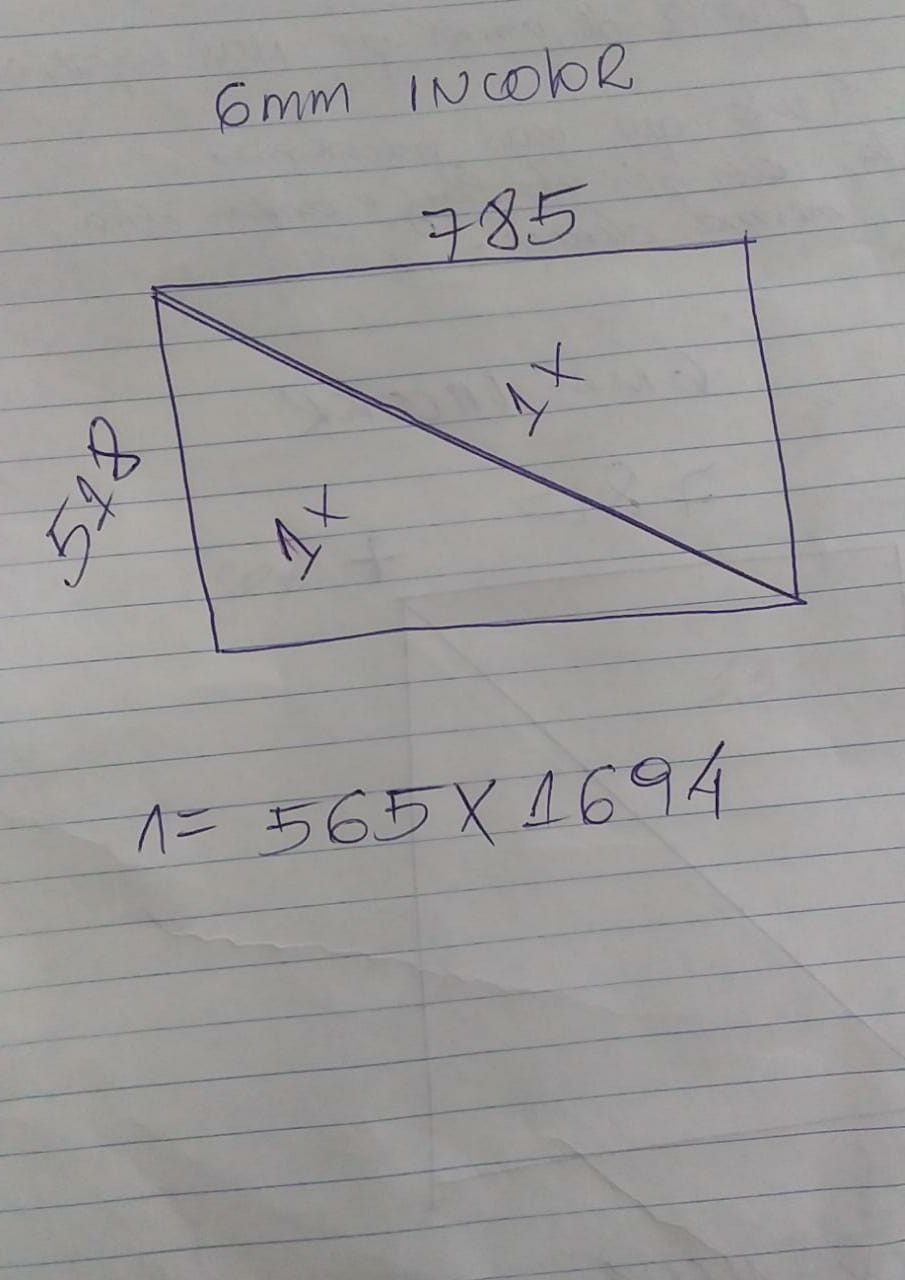 6mm INCOLOR
785
1x
518
1x
1= 565 X 1694